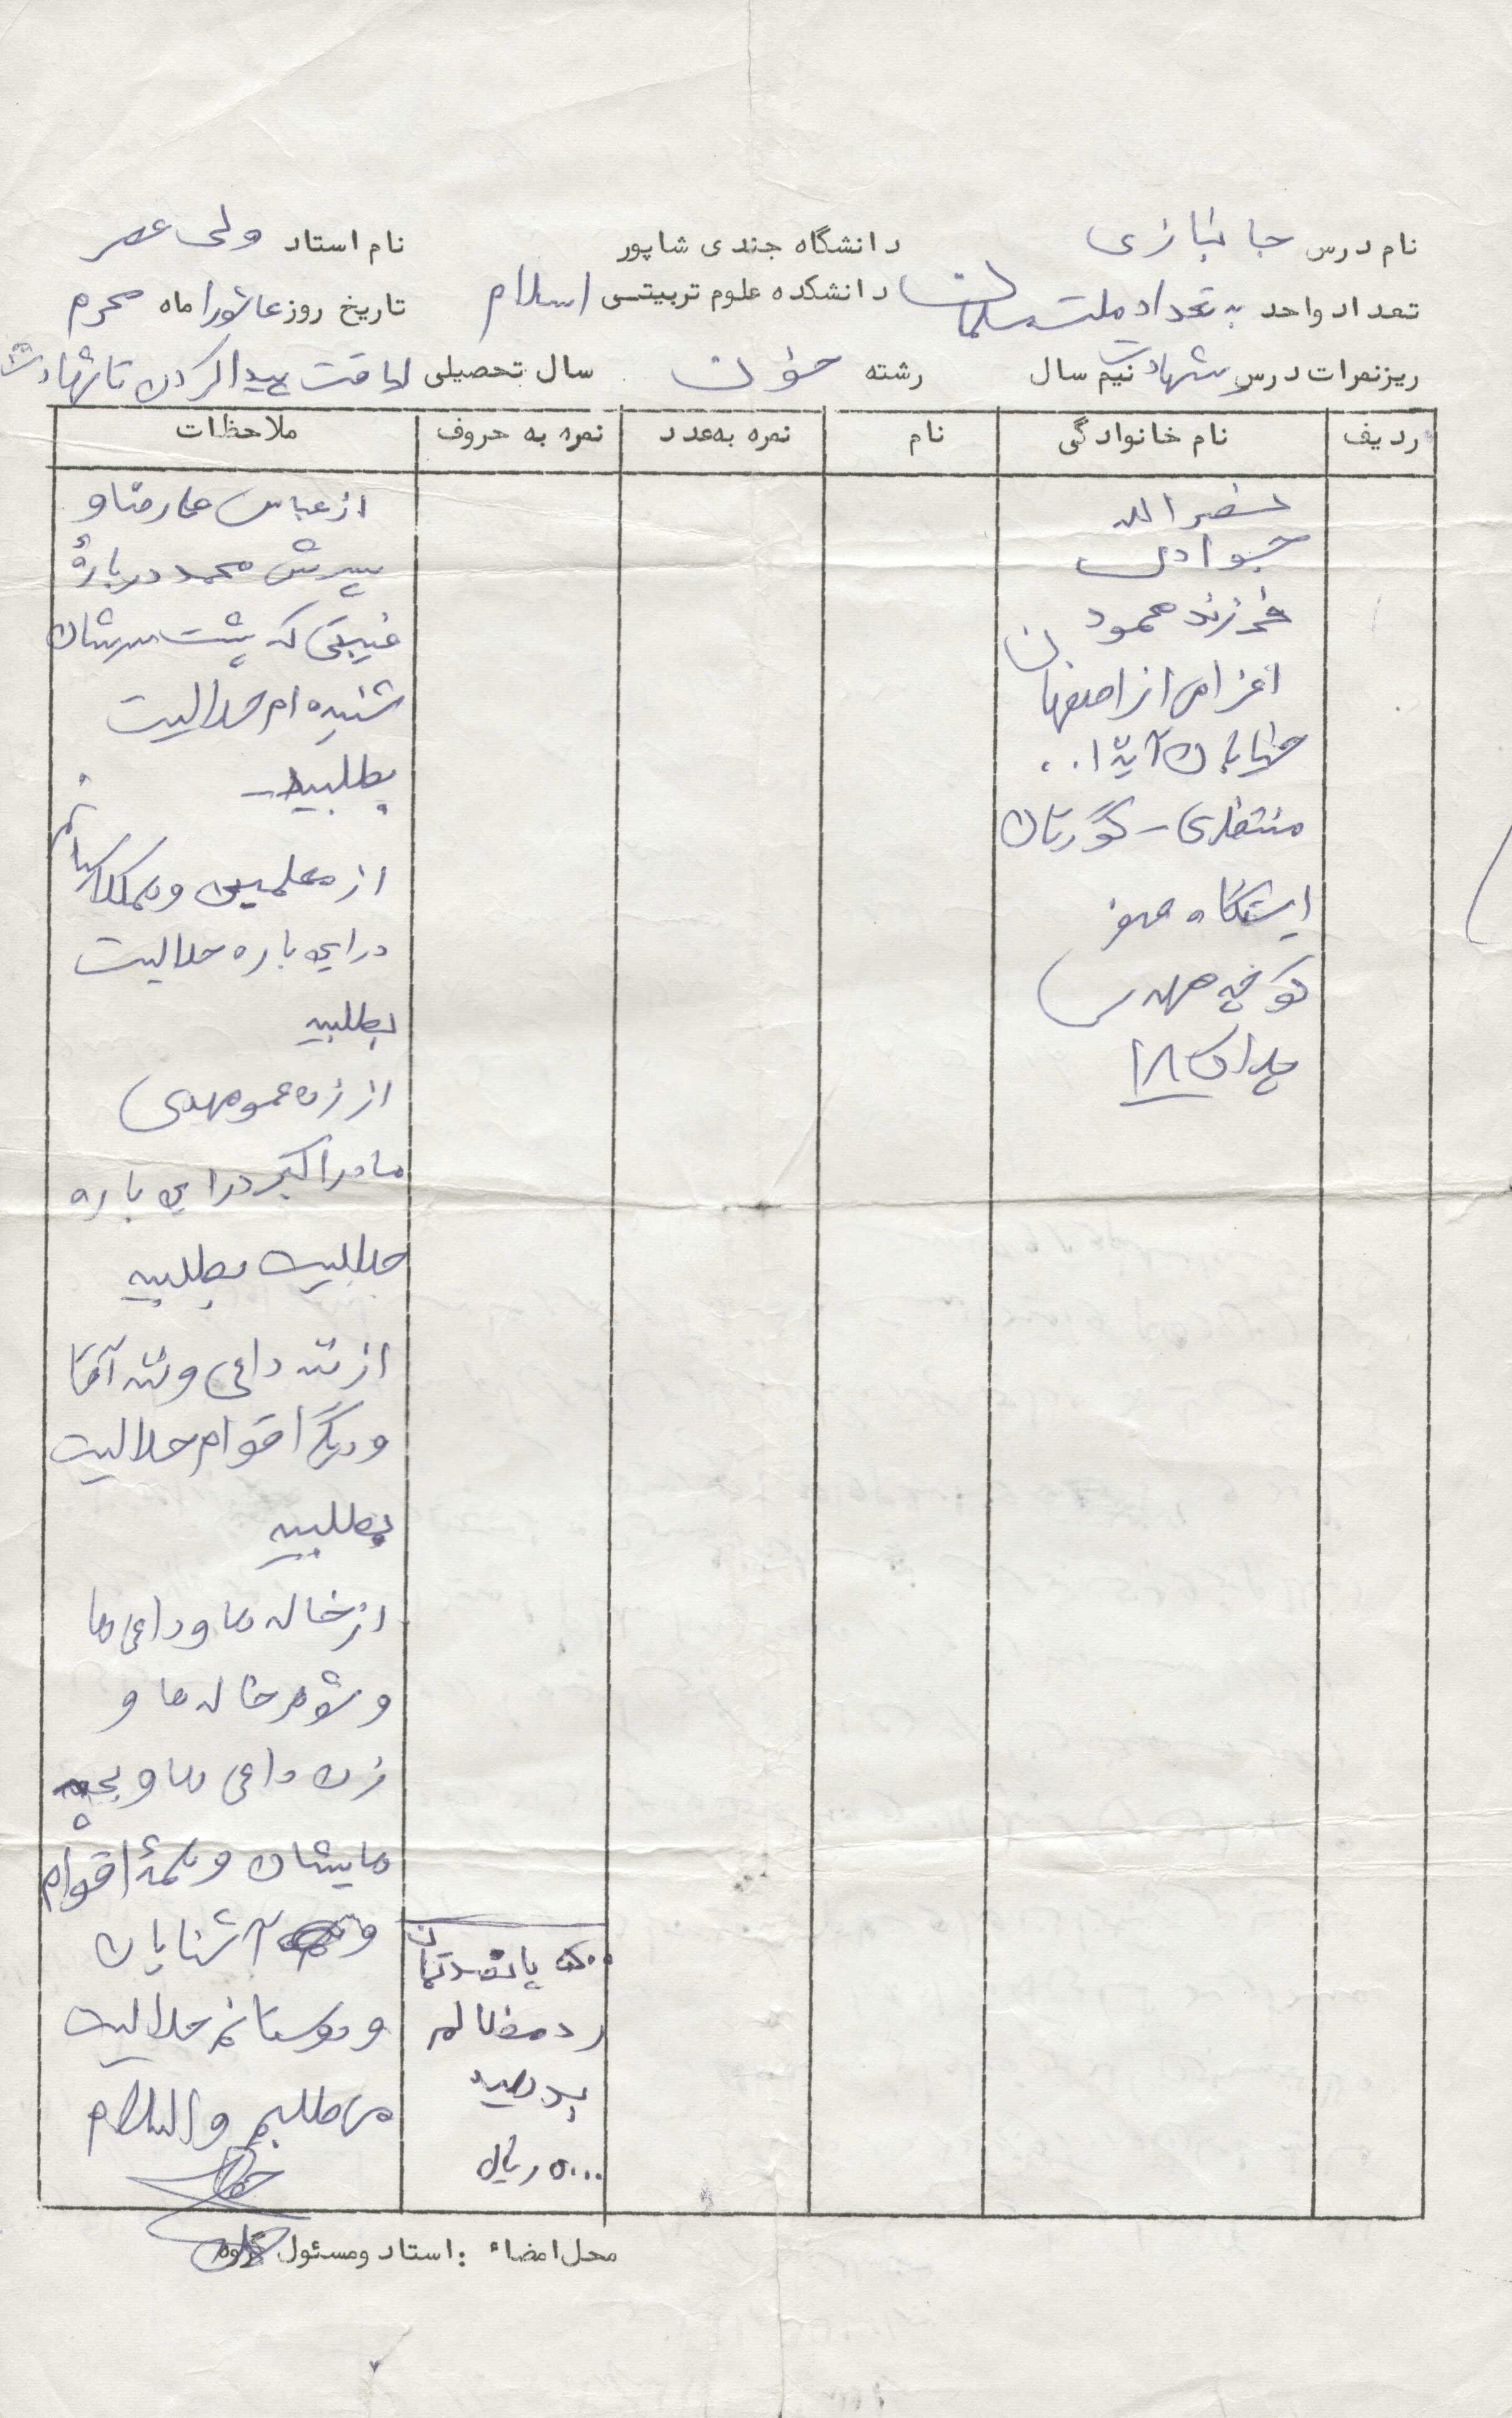 نام درس جانبازی دانشگاه جندی شاپور نام استاد ولی عصر
تعداد واحد به تعداد ملت مسلمان دانشکده علوم تربیتی اسلام تاریخ روز عاشورا ماه محرم
ریزنمرات درس شهادت نیم سال رشته خون سال تحصیلی لیاقت پیدا کردن تا شهادت
ردیف نام خانوادگی نام نمره به عدد نمره به حروف ملاحظات
نصرالله
جوادی
فرزند محمود
اعزامی از اصفهان
خیابان آیة ا..
منتظری - گورتان
ایستگاه صفر
کوچه مهدی
پلاک ۱۸
۵۰۰ پانصد تمان
رد مظالم
بدهید
۵۰۰۰ ریال
از عباس و
پسرش محمد دربارهٔ
غیبتی که پشت سرشان
شنیده ام حلالیت
بطلبید
از معلمین و همکلاسیانم
در این باره حلالیت
بطلبید
از زن عمو مهدی
مادر اکبر در این باره
حلالیت بطلبید
از ننه دائی و ننه آقا
و دیگر اقوام حلالیت
بطلبید
از خاله ها و دائی ها
و شوهر خاله ها و
زن دائی ها و بچه
هایشان و همهٔ اقوام
و آشنایان
و دوستانم حلالیت
می طلبم والسلام
محل امضاء : استاد ومسئول گروه